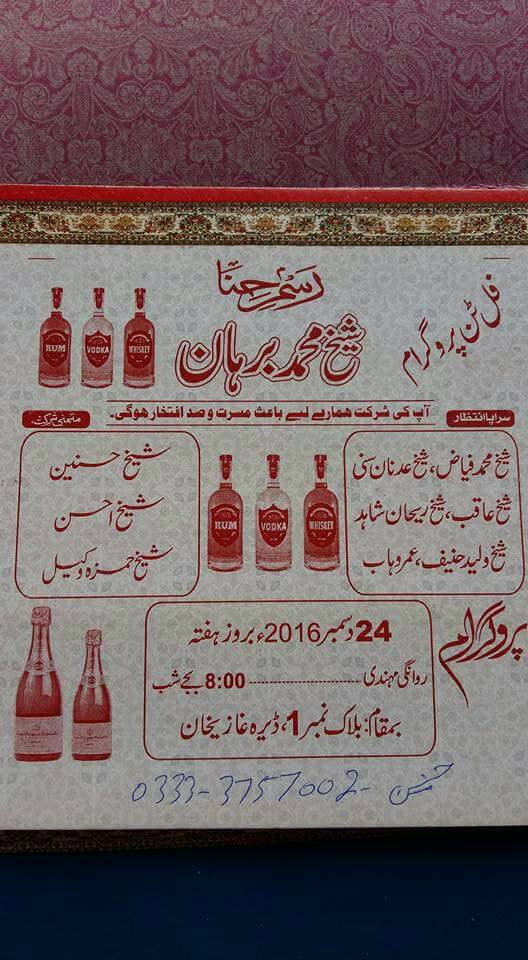 رسم حنا
فل ٹن پروگرام
RUM VODKA WHISKEY
شیخ محمد برہان
آپ کی شرکت ہمارے لیے باعث مسرت و صد افتخار ہوگی۔
سراپا انتظار
متمنی شرکت
شیخ محمد فیاض، شیخ عدنان سنی
شیخ عاقب، شیخ ریحان شاہد
شیخ ولید حنیف، عمر وہاب
RUM VODKA WHISKEY
شیخ حسنین
شیخ احسن
شیخ حمزہ وکیل
پروگرام
24 دسمبر 2016ء بروز ہفتہ
روانگی مہندی ---------------- 8:00 بجے شب
بمقام: بلاک نمبر 1، ڈیرہ غازیخان
0333-3757002